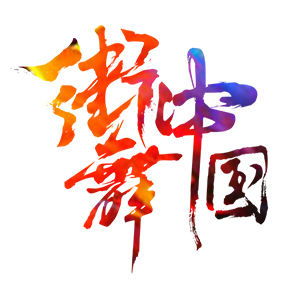 街舞
中国